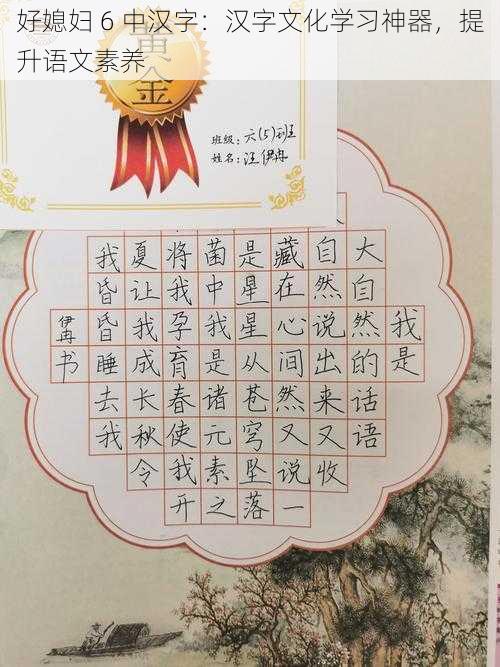 好媳妇 6 中汉字：汉字文化学习神器，提
升语文素养
黄
金
班级：六(5)班
姓名：汪伊冉
我是
大自然的话语
自然说出来又收
藏在心间然又说一
是星星从苍穹坠落
菌中我是诸元素之
将我孕育春使我开
夏让我成长秋令
我昏昏睡去我
伊冉书